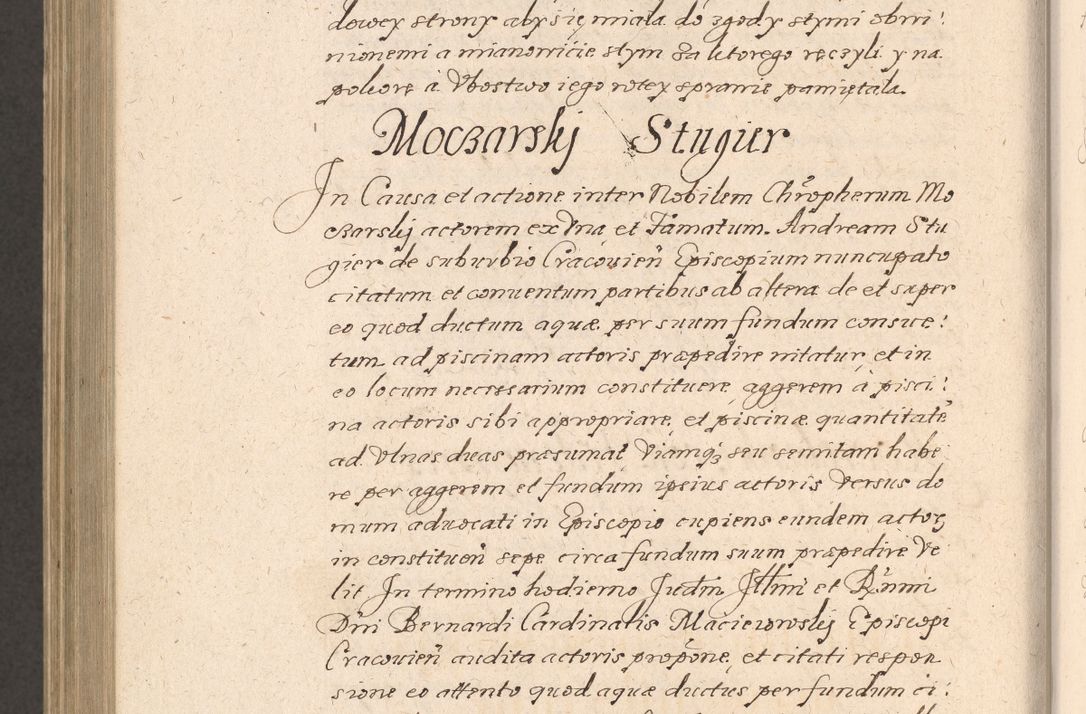 dowey strony aby się miała do zgody stymi obwi:
nionemi a mianowicie stym za ktorego ręczyli y na
pokorę á Vbostwo iego wtey sprawie pamiętała.
Moczarskij Stugier
In Causa et actione inter Nobilem Chrōpherum Mo
czarskij actorem ex Vna et Famatum Andream Stu
gier de suburbio Cracouień Episcopium nuncupato
citatum et conuentum partibus ab altera de et super
eo quod ductum aquæ per suum fundum consue:
tum ad piscinam actoris præpedire nitatur, et in
eo locum necessarium constituere aggerem à pisci:
na actoris sibi appropriare, et piscinæ quantitatē
ad Vlnas duas præsumat Viamq̃ seu semitam habe
re per aggerem et fundum ipsius actoris Versus do
mum aduocati in Episcopio cupiens eundem actorē
in constituen̄ sepe circa fundum suum præpedire Ve
lit In termino hodierno Judm̄ Jllm̄i et Rn̄mi
Dn̄i Bernardi Cardinalis Macieiowskij Episcopi
Cracouień audita actoris propōne, et citati respon
sione eo attento quod aquæ ductus per fundum ci: